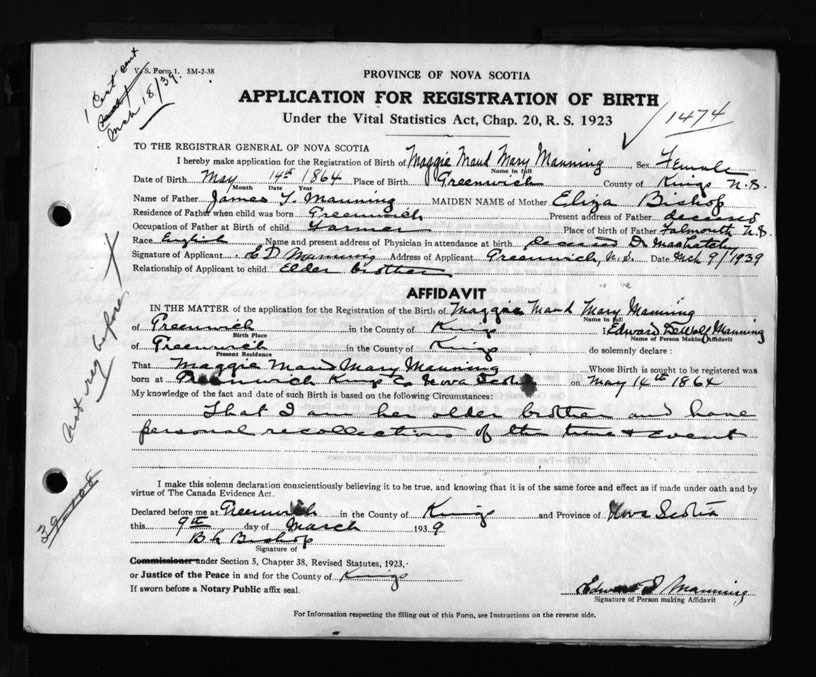 V. S. Form 1. 5M-2-38
1 Cert sent
Mch 18/39.
PROVINCE OF NOVA SCOTIA
APPLICATION FOR REGISTRATION OF BIRTH
Under the Vital Statistics Act, Chap. 20, R. S. 1923
1474
TO THE REGISTRAR GENERAL OF NOVA SCOTIA
I hereby make application for the Registration of Birth of Maggie Maud Mary Manning Sex Female
Name in full
Date of Birth May 14th 1864 Place of Birth Greenwich County of Kings N.S.
Month Date Year
Name of Father James Y. Manning MAIDEN NAME of Mother Eliza Bishop
Residence of Father when child was born Greenwich Present address of Father deceased
Occupation of Father at Birth of child Farmer Place of birth of Father Falmouth N.S.
Race English Name and present address of Physician in attendance at birth Deceased Dr.
Signature of Applicant E D Manning Address of Applicant Greenwich, N.S. Date Mch 9/1939
Relationship of Applicant to child Elder brother
AFFIDAVIT
IN THE MATTER of the application for the Registration of the Birth of Maggie Maud Mary Manning
Name in full
of Greenwich in the County of Kings I Edward DeWolf Manning
Birth Place Name of Person Making Affidavit
of Greenwich in the County of Kings do solemnly declare:
Present Residence
That Maggie Maud Mary Manning Whose Birth is sought to be registered was
born at Greenwich Kings Co Nova Scotia on May 14th 1864
My knowledge of the fact and date of such Birth is based on the following Circumstances:
That I am her older brother and have
personal recollections of the time & event
I make this solemn declaration conscientiously believing it to be true, and knowing that it is of the same force and effect as if made under oath and by
virtue of The Canada Evidence Act.
Declared before me at Greenwich in the County of Kings and Province of Nova Scotia
this 9th day of March 1939
B h Bishop
Signature of
Commissioner under Section 5, Chapter 38, Revised Statutes, 1923,
or Justice of the Peace in and for the County of Kings
If sworn before a Notary Public affix seal.
Edward D Manning
Signature of Person making Affidavit
For Information respecting the filling out of this Form, see Instructions on the reverse side.
not reg before
39-108